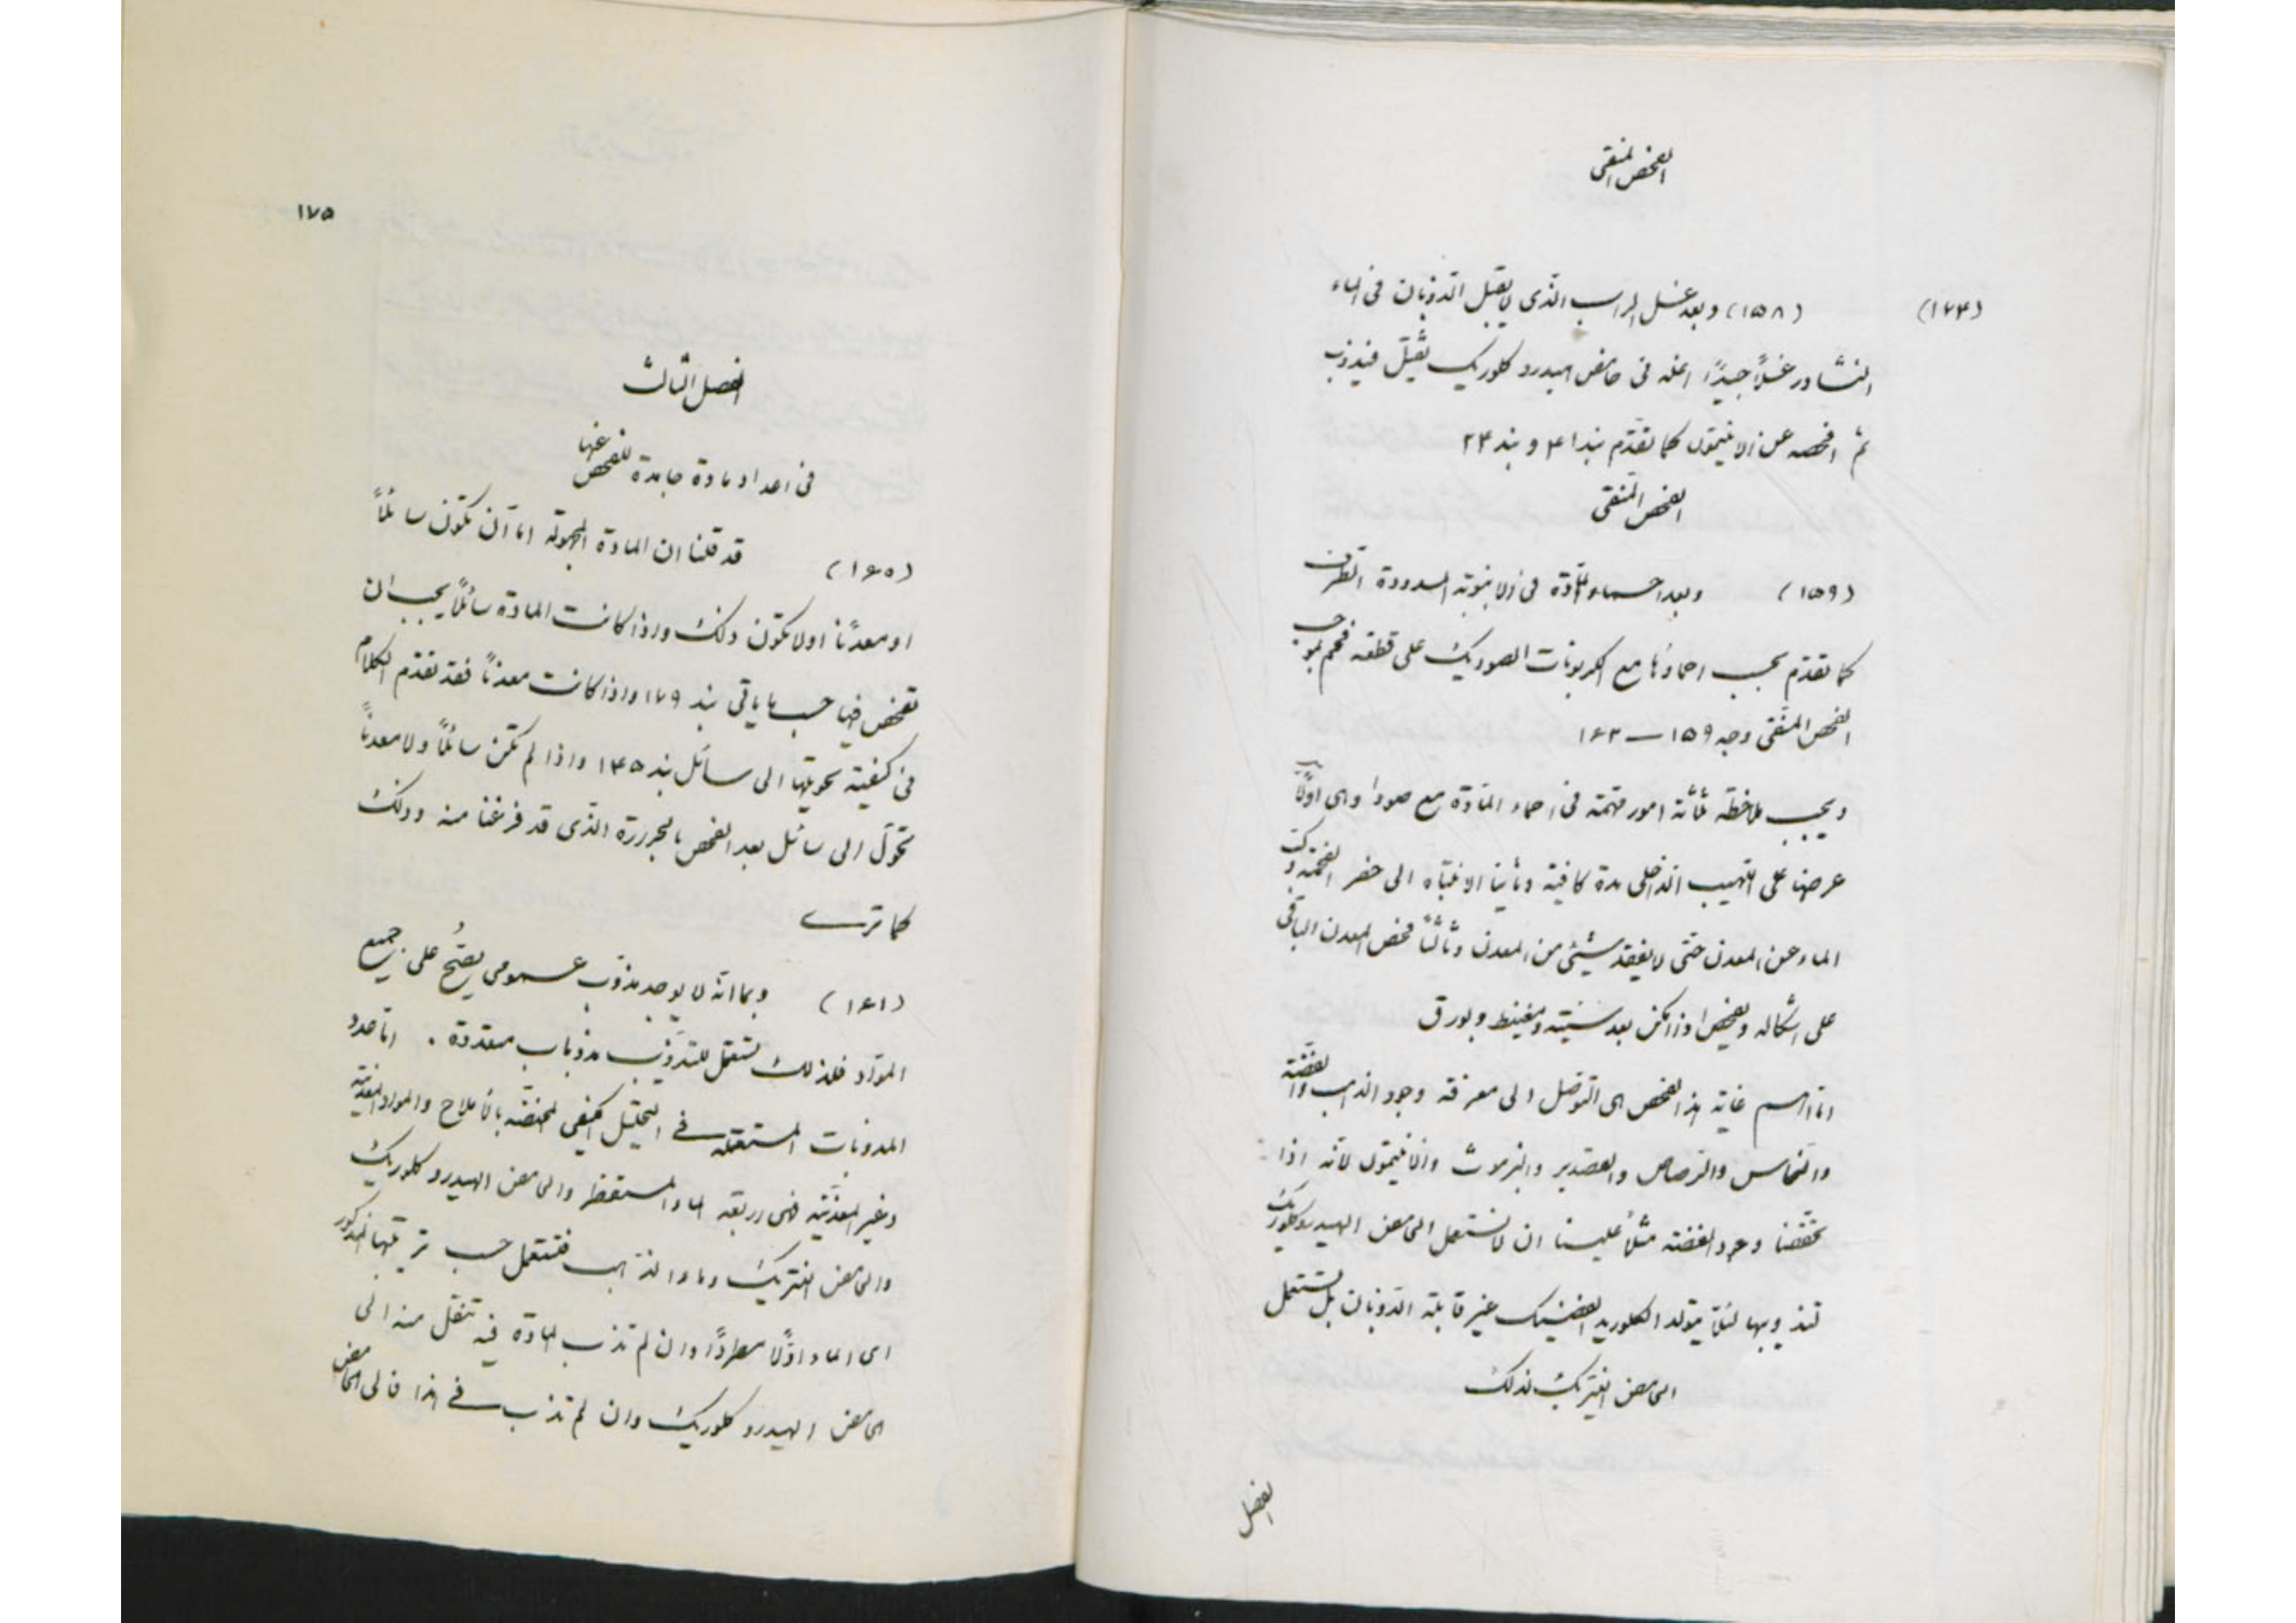 الفحص المنقى
(١٧۴)
(١۵٨) وبعد غسل الراسب الذى لا يقبل الذوبان فى الماء
النشادر غسلاً جيدًا اغله فى حامض هيدرو كلوريك ثقيل فيذوب
ثم افحصه عن الانتيمون كما تقدّم بند ۴١ و بند ٢۴
الفحص المنقى
(١۵٩) وبعد احماء المادّة فى الانبوبة المسدودة الطرف
كما تقدّم يجب احماؤها مع الكربونات الصوديك على قطعة فحم بموجب
الفحص المنقى وجه ١۵٩ — ١۶٣
ويجب ملاحظة ثلاثة امور مهمة فى احماء المادّة مع صودا وهى اولاً
عرضها على اللهيب الداخلى مدة كافية وثانيا الانتباه الى حفر الفحمة
الماء عن المعدن حتى لا يفقد شيئ من المعدن وثالثاً فحص المعدن الباقى
على اشكاله وفحص اذا امكن بعد
اما اهم غاية هذا الفحص هى التوصّل الى معرفة وجود الذهب والفضّة
والنحاس والرصاص والقصدير والبزموث والانتيمون لانه اذا
تحققنا وجود الفضة مثلاً علينا ان لا نستعمل الحامض الهيدروكلوريك
لتذويبها لئلا يتولد الكلوريد الفضيك غير قابلة الذوبان بل نستعمل
الحامض النيتريك لذلك
الفصل
١٧۵
الفصل الثالث
فى اعداد مادة جامدة للفحص عنها
(١۶٠) قد قلنا ان المادة المجهولة اما ان تكون سائلاً
او معدنًا او لا تكون ذلك واذا كانت المادة سائلاً يجب ان
تفحص فيها حسب ما ياتى بند ١٧٩ واذا كانت معدناً فقد تقدّم الكلام
فى كيفية تحويلها الى سائل بند ١۴۵ واذا لم تكن سائلاً ولا معدناً
تحوّل الى سائل بعد الفحص بالحرارة الذى قد فرغنا منه وذلك
كما ترى
(١۶١) وبما انه لا يوجد مذوّب عمومى يصحّ على جميع
الموّاد فلذلك تستعمل للتذوّب مذوبات متعددة . اما عدد
المذوبات المستعملة فى التحليل الكيفى المختصّة بالاملاح والمواد المعدنية
وغير المعدنيّة فهى اربعة الماء المستقطر والحامض الهيدروكلوريك
والحامض النتريك وماء الذهب فتستعمل حسب ترتيبها المذكور
اى الماء اولاً مطردًا وان لم تذب المادة فيه تنقل منه الى
الحامض الهيدرو كلوريك وان لم تذب فى هذا فالى الحامض